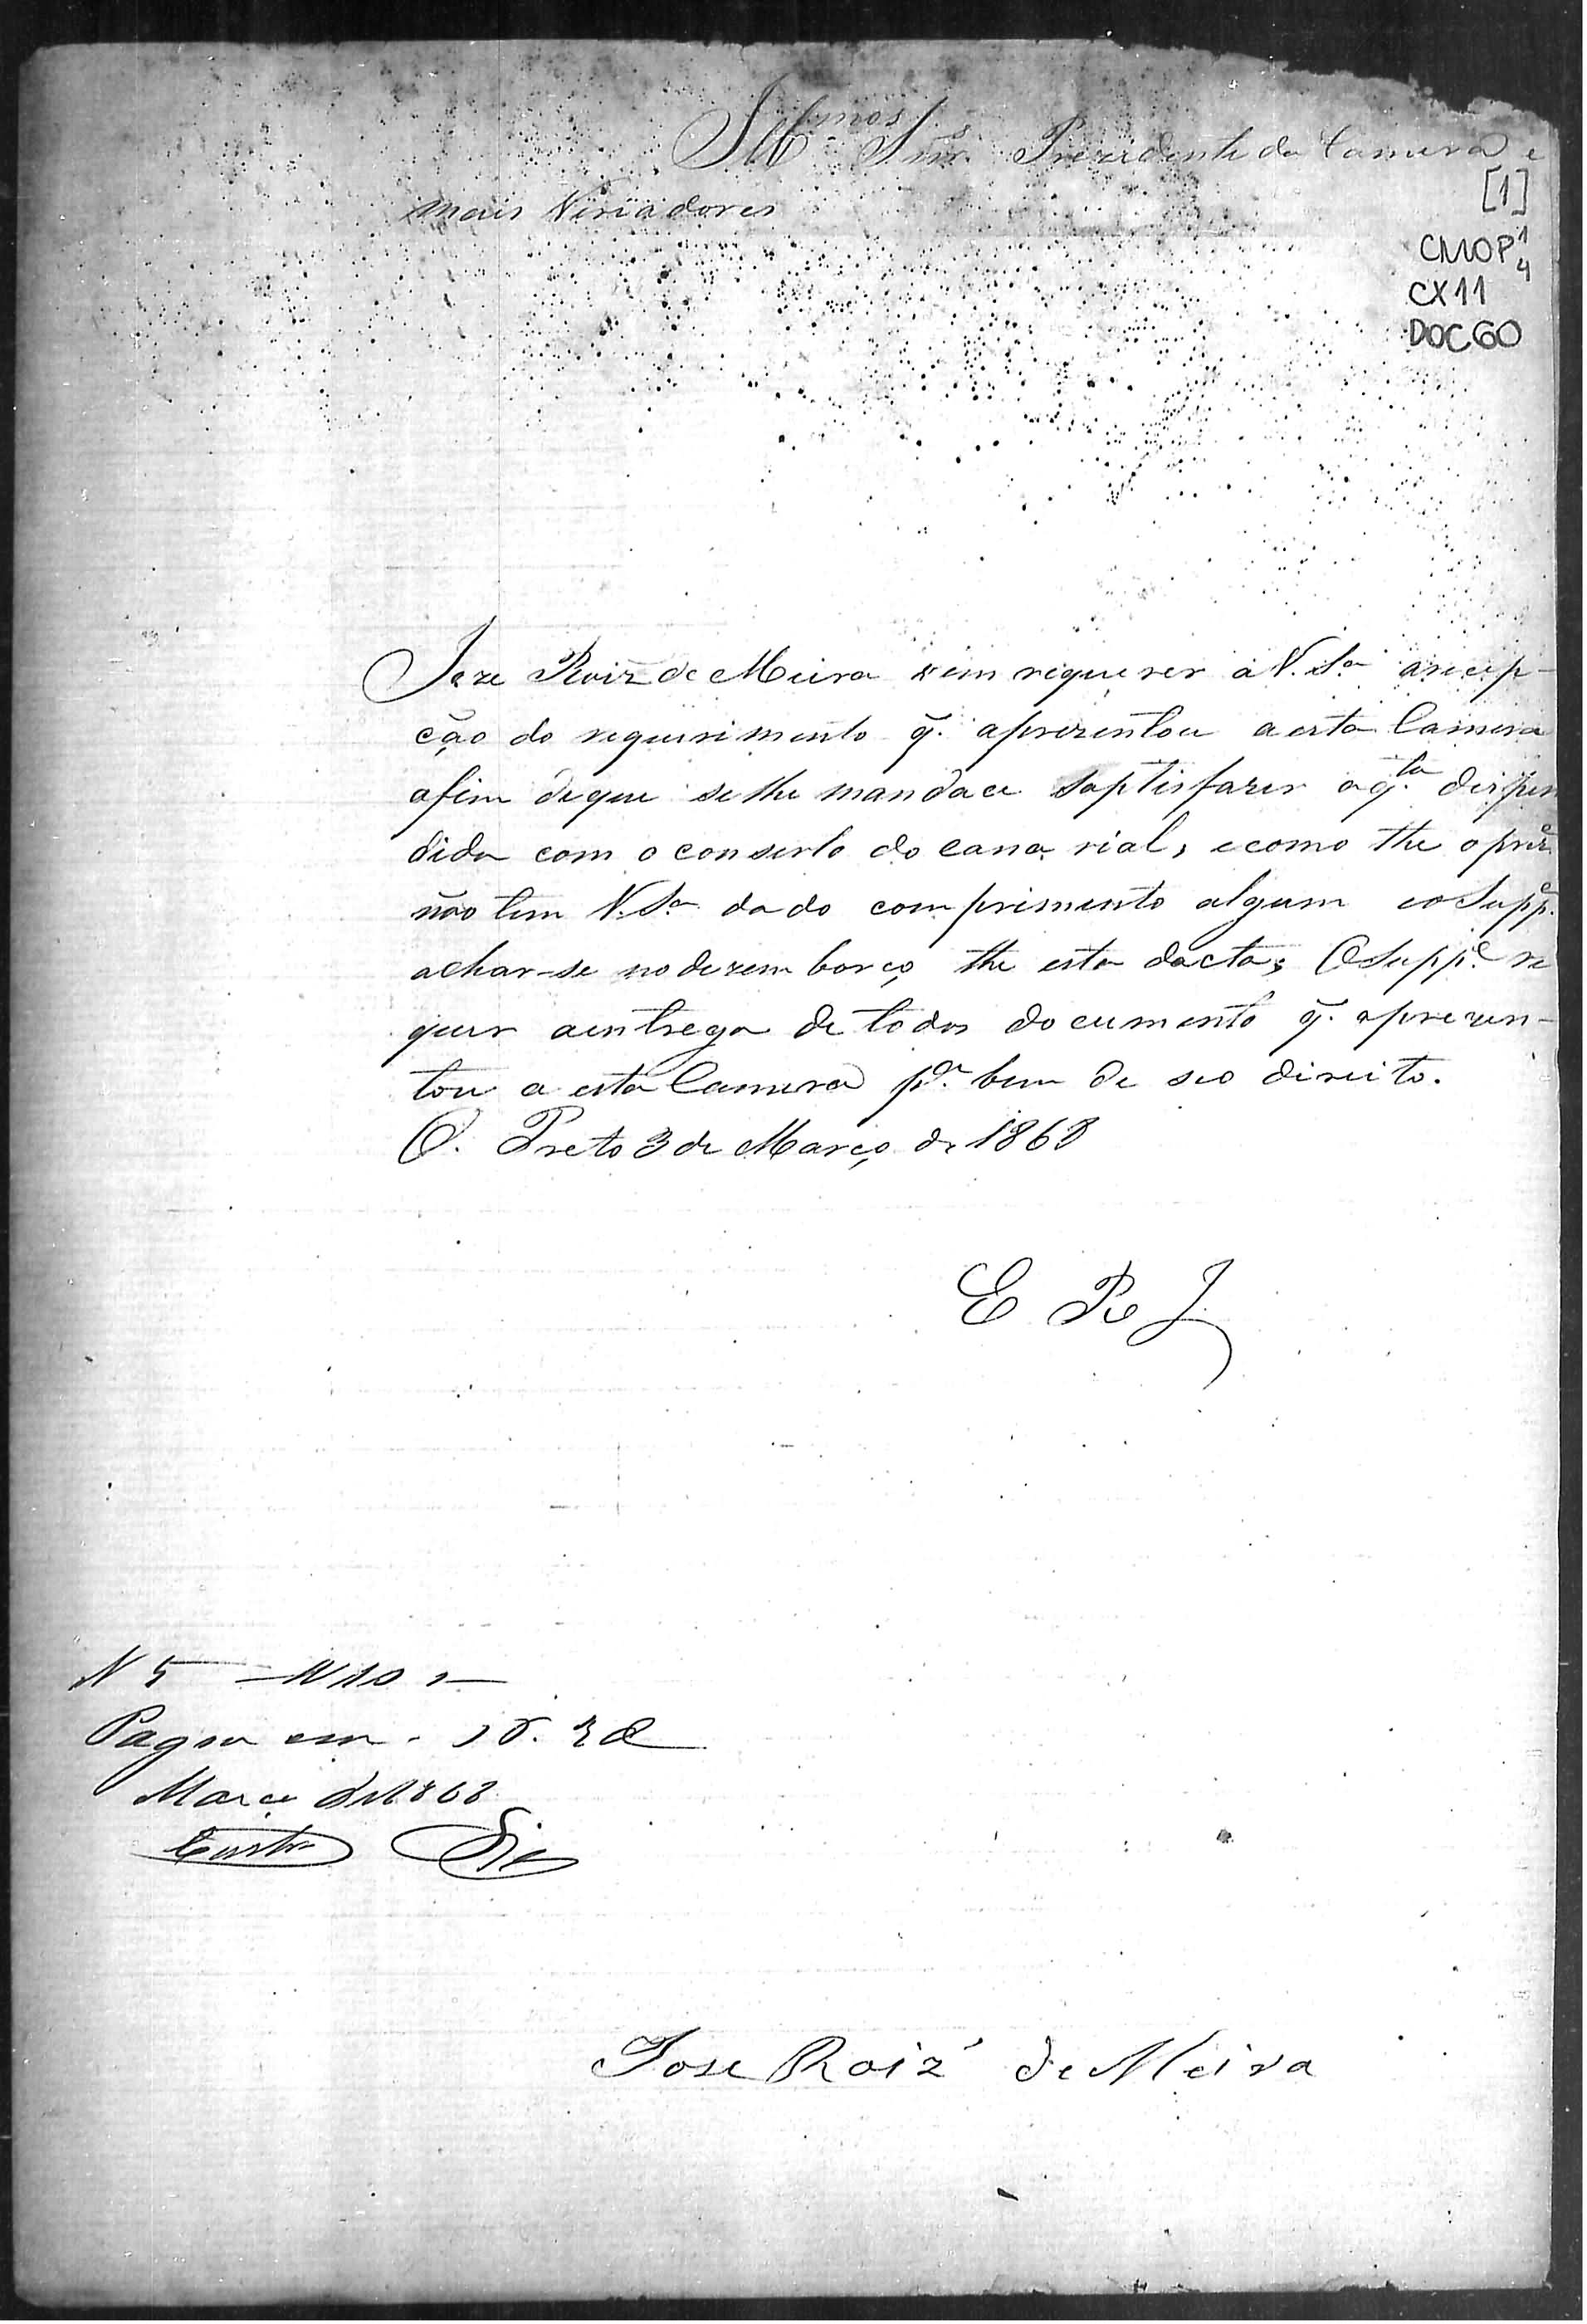 Illmos Snrs. Prezidente da Camera e
mais Veriadores
[1]
CMOP 1/4
CX11
DOC60
Joze Roiz de Meira vem requerer a V. Sa. arecep-
ção do requirimento q. aprezentou a esta Camera
afim deque se lhe mandace saptisfazer a q.tia dispen
dida com o conserto do cano rial, ecomo the o prez.e
não tem V. Sa. dado comprimento algum eo Supp.e
achar-se no dezemborço the esta dacta; O Supp.e re
quer aentrega de todos documento q. aprezen-
tou a esta Camera p.a bem de seo direito.
O. Preto 3 de Março de 1868
E R J
N 5
Pagou em
Março de 1868
Jose Roiz de Meira